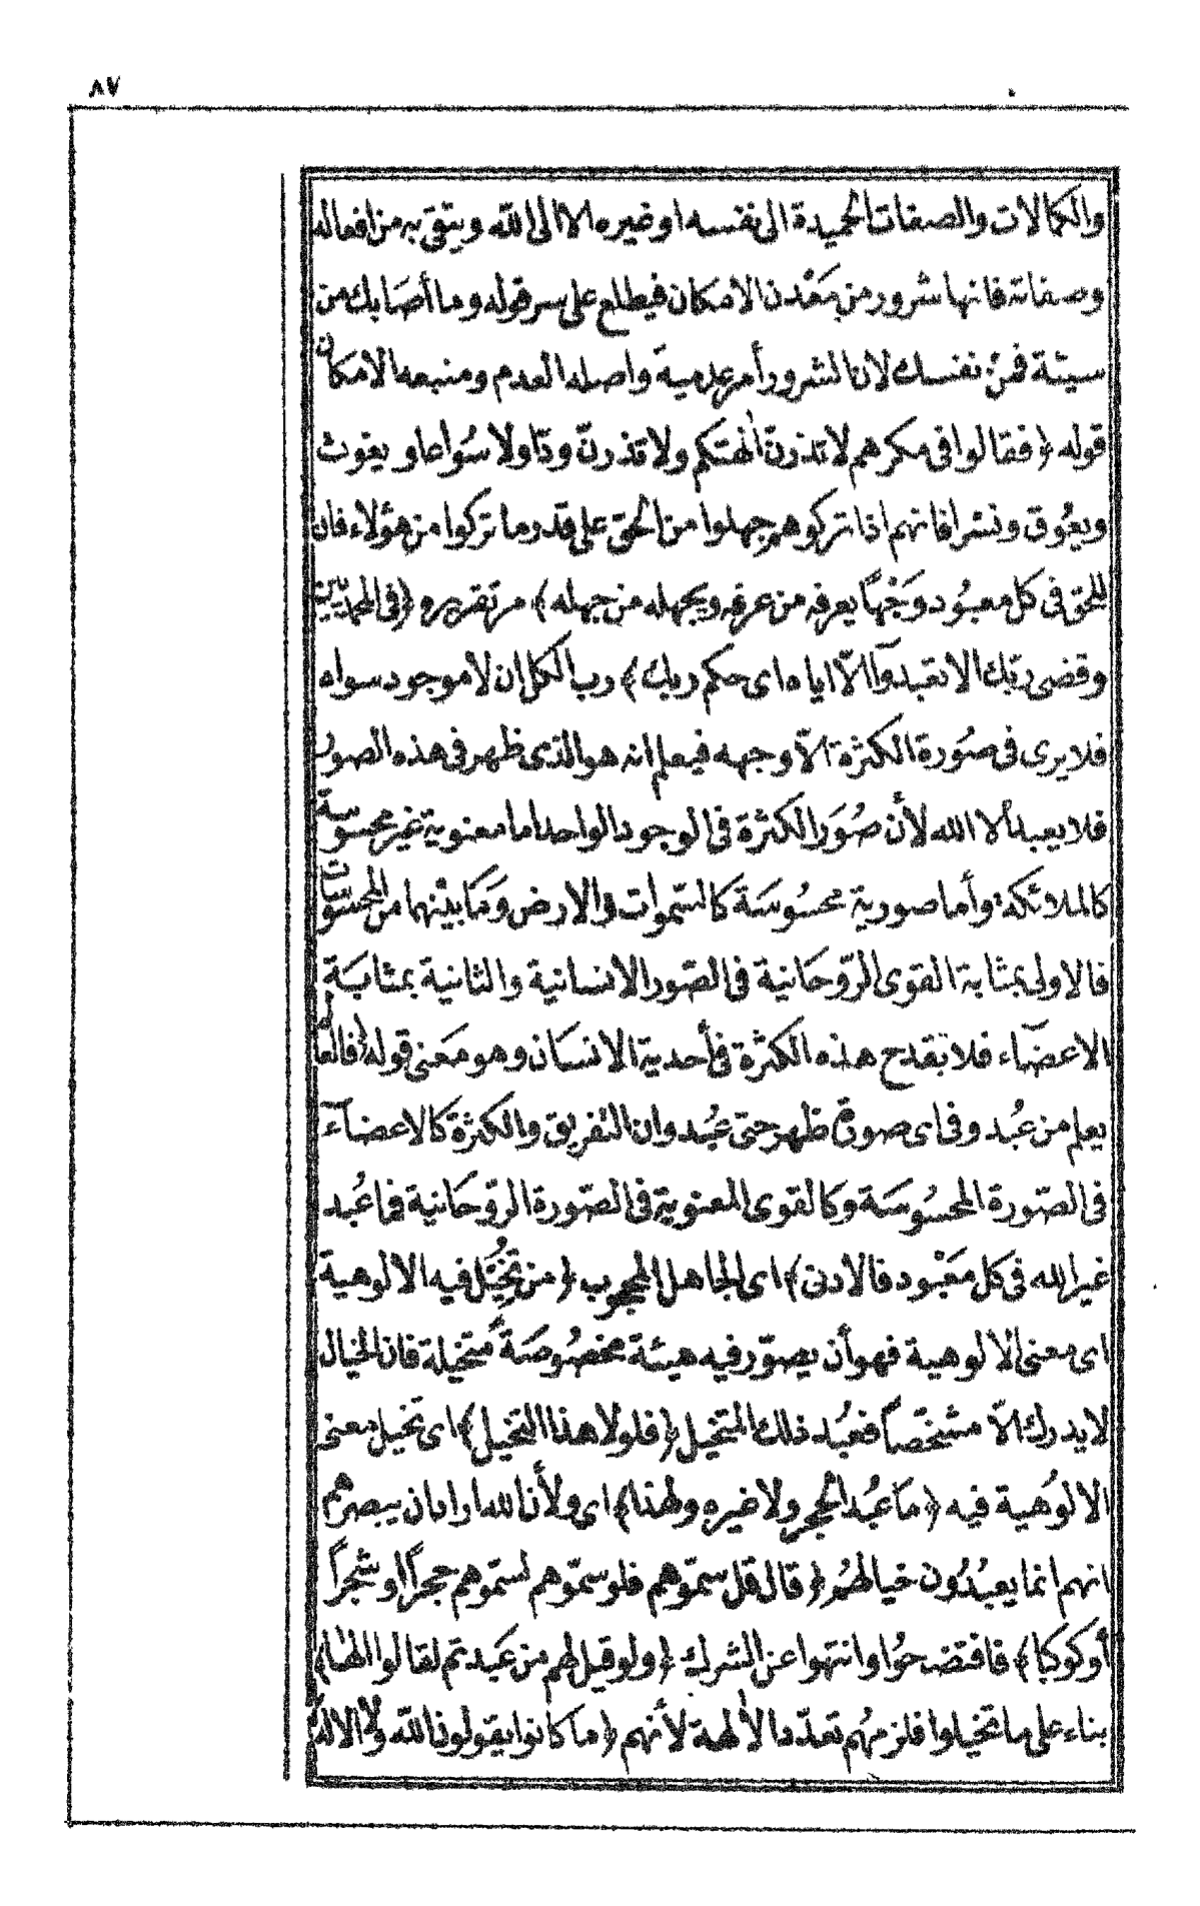 ٨٧
والكمالات والصفات الحميدة الى نفسه او غيره الا الى الله ويتقى به من افعاله
وصفاته فانها شرور من مَعْدن الامكان فيطلع على سر قوله وما أصَابك من
سيئة فمن نفسك لان الشرور أمر عدمية واصله العدم ومنبعه الامكان
قوله ﴿ فقالوا فى مكرهم لا تذرنّ اٰلهتكم ولا تذرنّ ودّا ولا سُواعا و يغوث
ويعُوق ونسرا فانهم اذا تركوهم جهلوا من الحق على قدر ما تركوا من هؤلاء فان
للحق فى كل معبُود وَجْهًا يعرفه من عرفه ويجهله من جهله ﴾ مر تقريره ﴿ فى المحمديين
وقضى ربّك الا تعبدوآ الّا اياه اى حكم ربك ﴾ رب الكل ان لا موجود سواه
فلا يرى فى صُورة الكثرة الّا وجهه فيعلم انه هو الذى ظهر فى هذه الصور
فلا يعبد الا الله لأن صُوَر الكثرة فى الوجود الواحد اما معنوية غير محسُوسة
كالملائكة وأما صورية محسُوسَة كالسّموات والارض وَمَا بيْنهما من المحسُوسَات
فالاولى بمثابة القوى الرّوحَانية فى الصّور الانسانية والثانية بمثابَة
الاعضَاء فلا تقدح هذه الكثرة فى أحدية الانسَان وهو مَعنى قوله ﴿ فالعالم
يعلم من عُبد وفى اى صورة ظهر حتى عُبد وان التفريق والكثرة كالاعضآء
فى الصّورة المحسُوسَة وكالقوى المعنوية فى الصّورة الرّوحَانية فما عُبد
غير الله فى كل مَعْبود فالادنى ﴾ اى الجاهل المحجوب ﴿ من تخيّل فيه الالوهية
اى معنى الالوهية فهو أن يصوّر فيه هيئة مخصُوصَة متخيلة فان الخيال
لا يدرك الّا مشخّصاً فعبُد ذلك المتخيل ﴿ فلولا هذا التخيل ﴾ اى تخيل معنى
الالوُهية فيه ﴿ مَا عُبد الحجر ولا غيره ولهذا ﴾ اى ولأن الله اراد ان يبصرهم
انهم انما يعبُدُون خيالهُم ﴿ قال قل سمّوهم فلو سمّوهم لسمّوهم حجراً او شجراً
أو كوكبا ﴾ فافتضحُوا وانتهوا عن الشرك ﴿ ولو قيل لهم من عَبدتم لقالوا الٰها ﴾
بناء على ما تخيلوا فلزمهُم تعدّد الاٰلهة لأنهم ﴿ ما كانوا يقولون الله ولا الاله